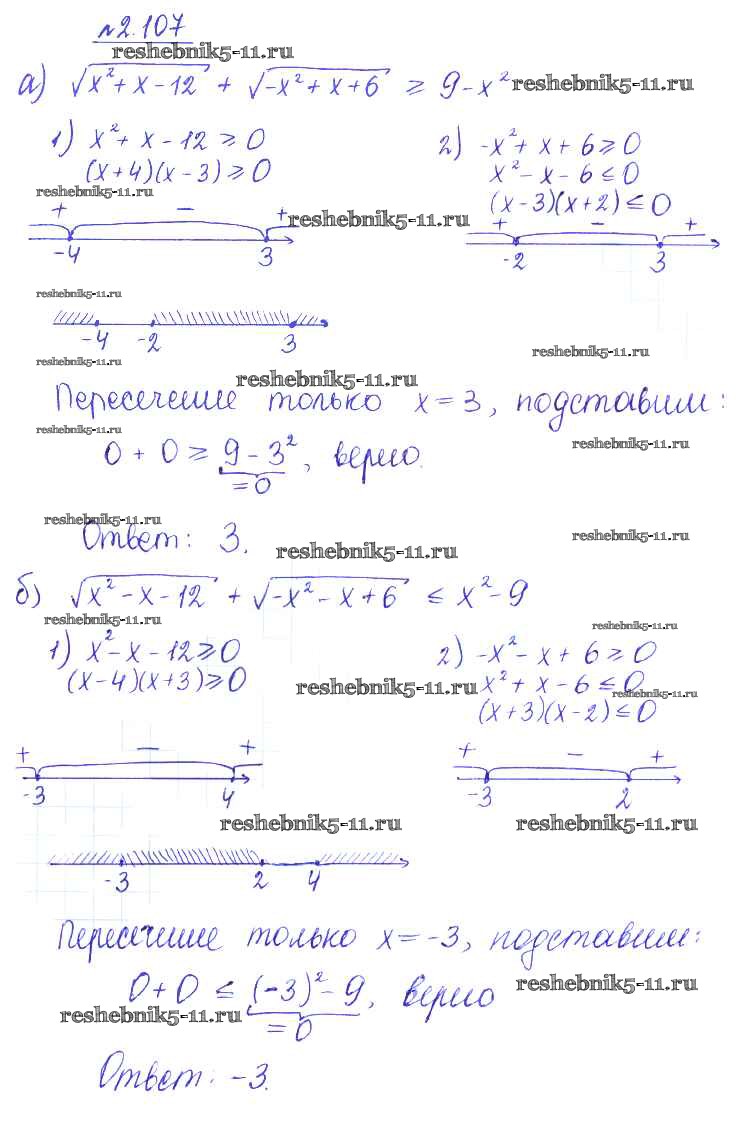 №2.107
reshebnik5-11.ru
а) √(x²+x-12) + √(-x²+x+6) ≥ 9-x² reshebnik5-11.ru
1) x²+x-12≥0 2) -x²+x+6≥0
(x+4)(x-3)≥0 x²-x-6≤0
reshebnik5-11.ru (x-3)(x+2)≤0
+ - + reshebnik5-11.ru + - +
-4 3 -2 3
reshebnik5-11.ru
-4 -2 3
reshebnik5-11.ru reshebnik5-11.ru
reshebnik5-11.ru
Пересечение только x=3, подставим:
reshebnik5-11.ru reshebnik5-11.ru
0+0≥9-3², верно.
=0
reshebnik5-11.ru reshebnik5-11.ru
Ответ: 3. reshebnik5-11.ru
б) √(x²-x-12) + √(-x²-x+6) ≤ x²-9
reshebnik5-11.ru reshebnik5-11.ru
1) x²-x-12≥0 2) -x²-x+6≥0
(x-4)(x+3)≥0 reshebnik5-11.ru x²+x-6≤0 reshebnik5-11.ru
(x+3)(x-2)≤0
+ - + + - +
-3 4 -3 2
reshebnik5-11.ru reshebnik5-11.ru
-3 2 4
Пересечение только x=-3, подставим:
0+0≤(-3)²-9, верно reshebnik5-11.ru
reshebnik5-11.ru =0
Ответ: -3.